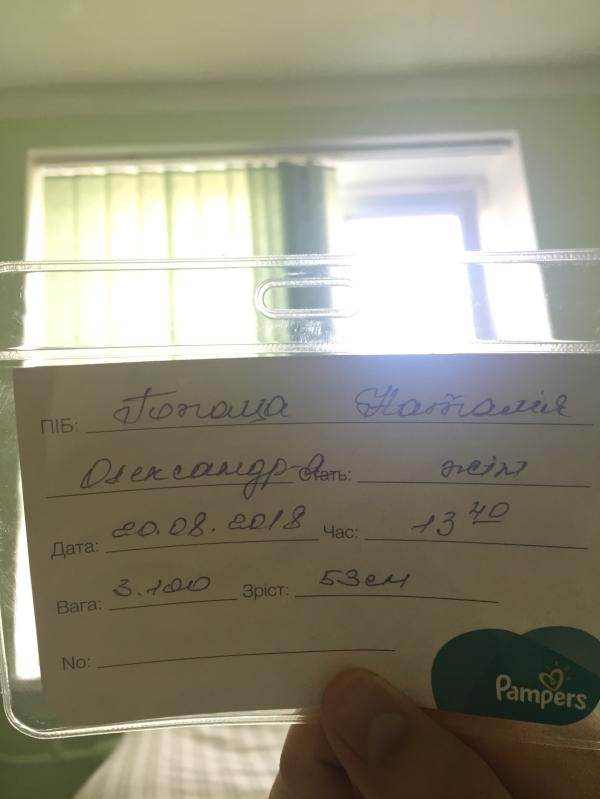 ПІБ: Наталія
Олександр-а Стать: жін
Дата: 20.08.2018 Час: 13 40
Вага: 3.100 Зріст: 53см
No:
Pampers